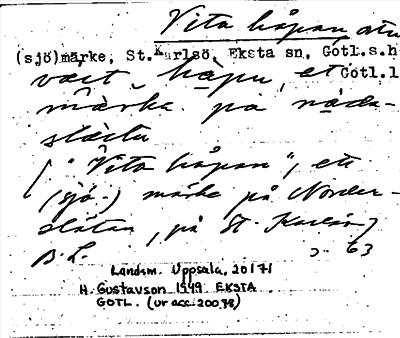 Vita håpan
(sjö)märke, St.Karlsö, Eksta sn, Gotl.s.h
Gotl.l
märke på
slätu
("Vita håpan", ett
(sjö-) märke på Norder-
slätan, på St. Karlsö)
B. L. 63
Landsm. Uppsala, 20171
H. Gustavson 1949 EKSTA
GOTL. (ur acc. 20078)